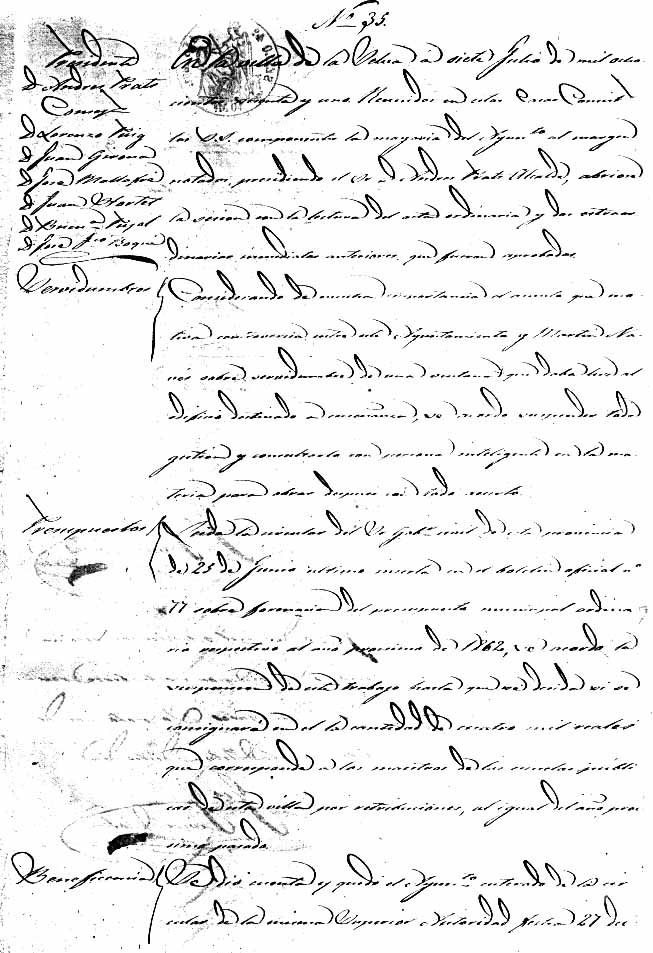 Nº 35.
Presidente
D. Andres Prats
Concej.
D. Lorenzo Puig
D. Juan Girona
D. José Mallafré
D. Juan Martet
D. Buen.ª Pujol
D. José Fco Boqué
En la villa de la Selva a siete Julio de mil ocho
cientos sesenta y uno. Reunidos en estas Casas Consisto
les los S.S. componentes la mayoria del Ayunto al margen
notados, presidiendo el Sr. D. Andres Prats Alcalde, abriose
la sesion con la lectura del acta ordinaria y dos estraor
dinarias inmediatas anteriores que fueron aprobadas.
Servidumbres
Considerando de mucha importancia el asunto que mo
tiva controversia entre este Ayuntamiento y Martin Ma
sobre servidumbre de una ventana que daba luz al
edificio destinado a enseñanza, se acordo suspender toda
gestion y consultarlo con persona inteligente en la ma
teria para obrar despues con todo acierto.
Presupuestos
Vista la circular del Sr. Gobr. civil de esta provincia
de 25 de Junio ultimo inserta en el boletin oficial nº
77 sobre formacion del presupuesto municipal ordina
rio respectivo al año procsimo de 1862, se acordo la
suspencion de este trabajo hasta que se decida si se
consignará en el la cantidad de cuatro mil reales
que corresponde a los maestros de las escuelas públi
cas de esta villa por retribuciones, al igual del año proc
simo pasado.
Beneficencia
Se dio cuenta y quedó el Ayunto enterado de la cir
cular de la misma Superior Autoridad fecha 27 de